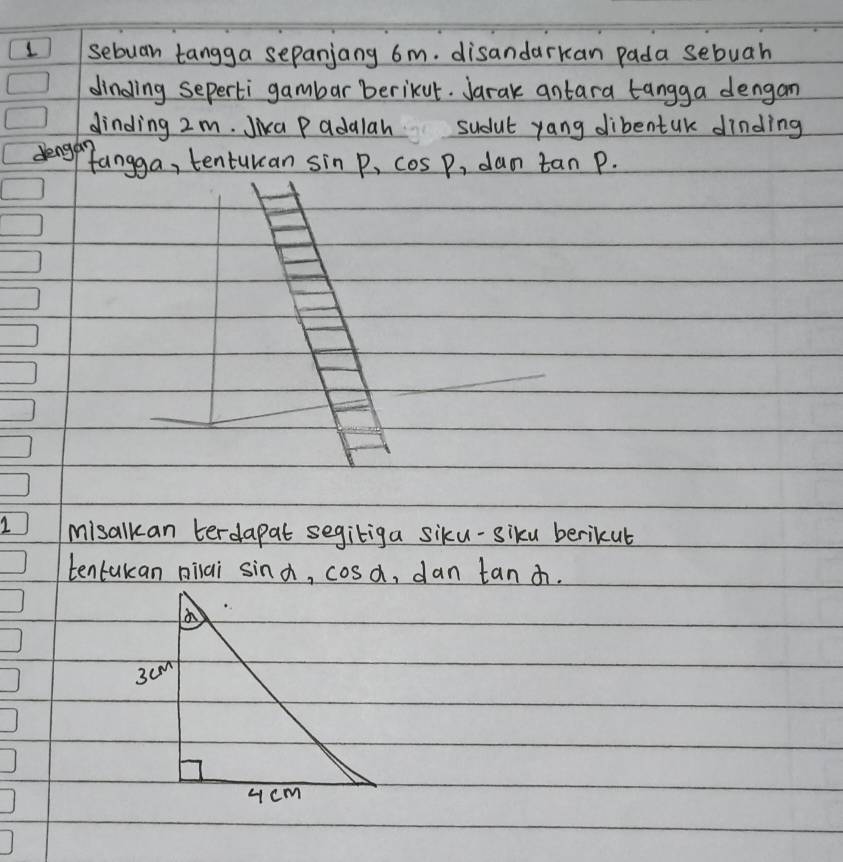 1 sebuah tangga sepanjang 6m. disandarkan pada sebuah
dinding seperti gambar berikut. Jarak antara tangga dengan
dinding 2m. Jika P adalah sudut yang dibentuk dinding
dengan tangga, tentukan sin P, cos P, dan tan P.
2 misalkan terdapat segitiga siku-siku berikut
tentukan nilai sin α, cos α, dan tan α.
α
3cm
4cm